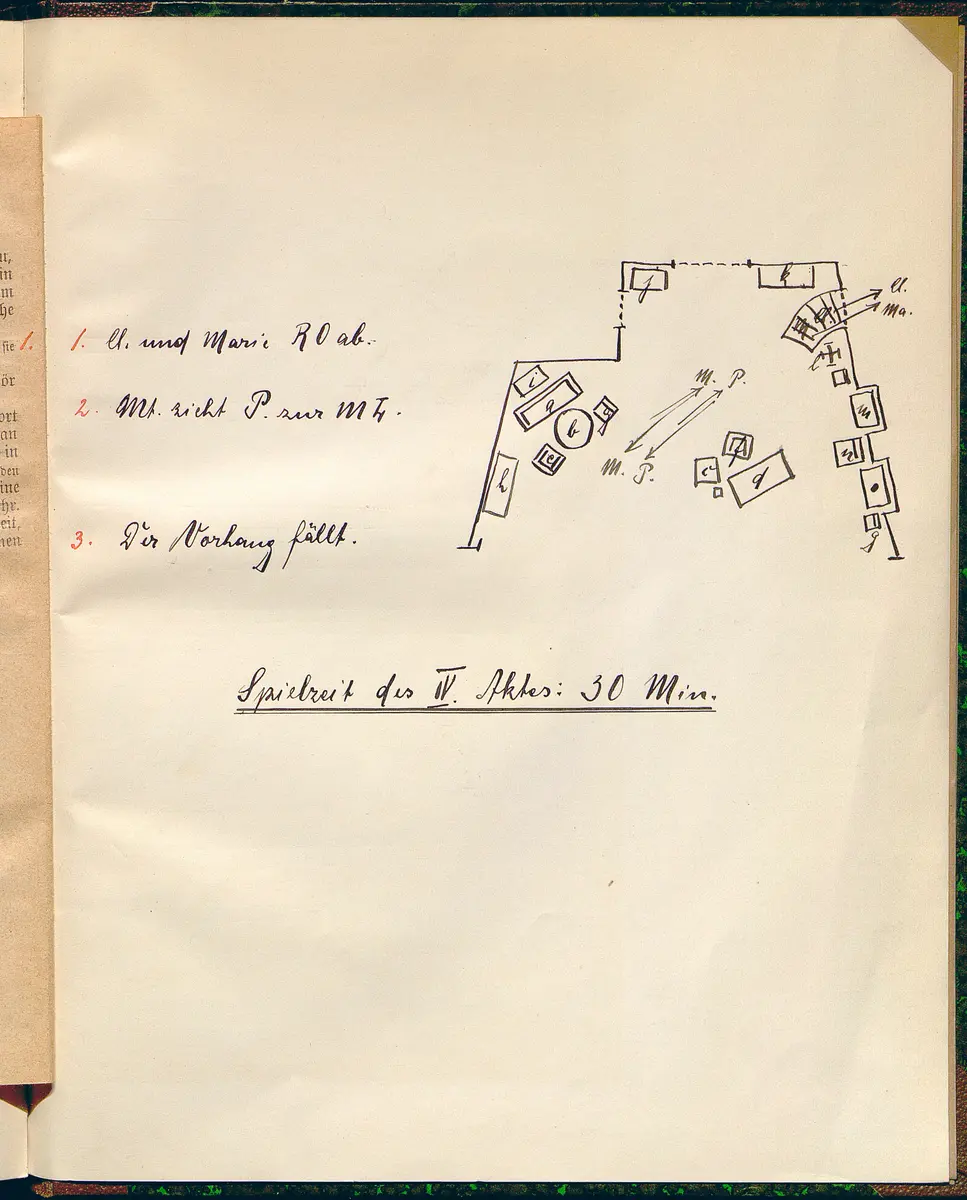 ur,
in
m
he
sie 1.
ör
ort
an
in
den
ine
hr.
eit,
nen
1. U. und Marie R O ab.
2. Mt. zieht P. zur M T.
3. Der Vorhang fällt.
j k
U.
Ma.
l
i a b
M. P.
M. P.
e h
c d
m
n
o
g
Spielzeit des IV. Aktes: 30 Min.